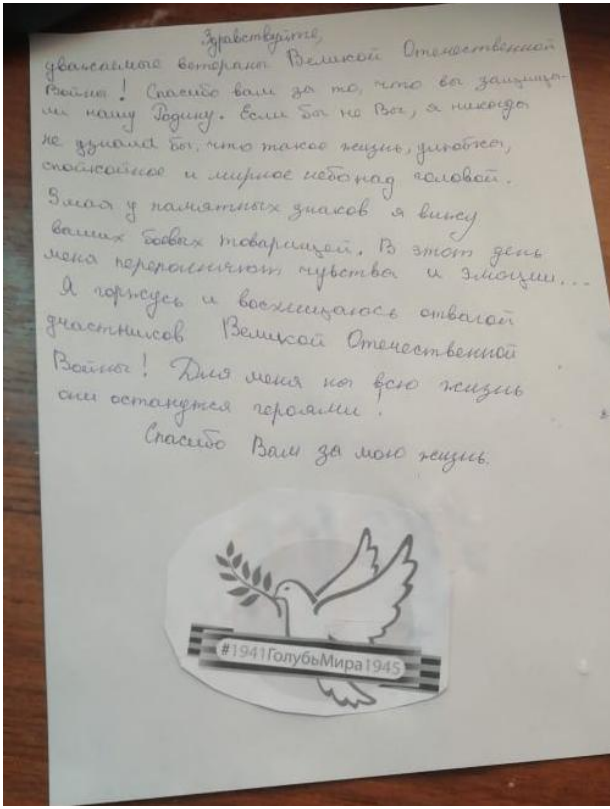 Здравствуйте,
уважаемые ветераны Великой Отечественной
Войны! Спасибо вам за то, что вы защища-
ли нашу Родину. Если бы не Вы, я никогда
не узнала бы, что такое жизнь, улыбки,
спокойное и мирное небо над головой.
9 мая у памятных знаков я вижу
ваших боевых товарищей. В этот день
меня переполняют чувства и эмоции...
Я горжусь и восхищаюсь отвагой
участников Великой Отечественной
Войны! Для меня на всю жизнь
они останутся героями!
Спасибо Вам за мою жизнь.
#1941ГолубьМира1945